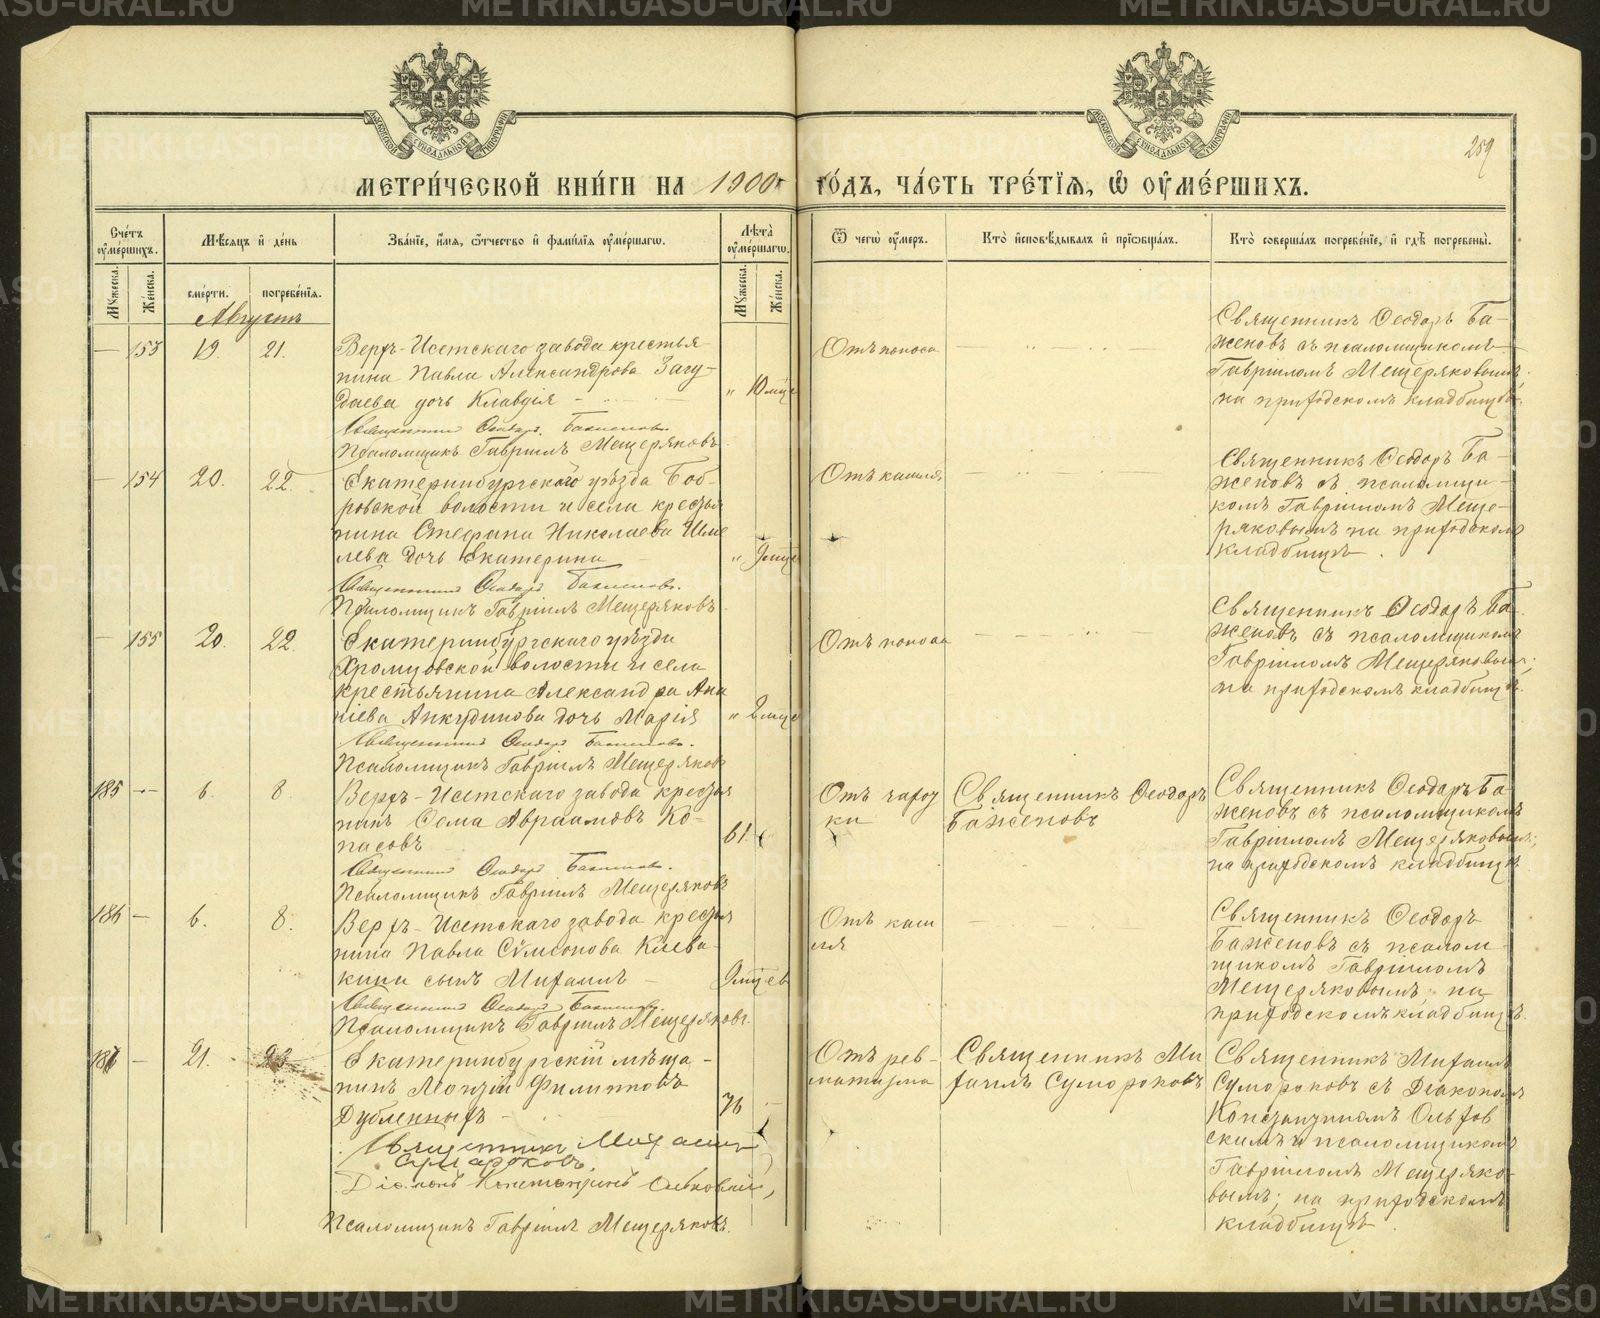 METRIKI.GASO-URAL.RU
МЕТРИ́ЧЕСКОЙ КНИ́ГИ НА 1900 г
ГО́ДЪ, ЧА́СТЬ ТРЕ́ТІѦ, Ѡ҆ ОУ҆МЕ́РШИХЪ.
259
Сче́тъ оу҆ме́ршихъ.
Мѣ́сяцъ и҆ де́нь
Зва́нїе, и҆́мѧ, ѻ҆́тчество и҆ фами́лїѧ оу҆ме́ршагѡ.
Лѣ́та оу҆ме́ршагѡ.
Ѿ чегѡ̀ оу҆́меръ.
Кто̀ и҆сповѣ́дывалъ и҆ прїѡбща́лъ.
Кто̀ соверша́лъ погребе́нїе, и҆ гдѣ̀ погребены̀.
Му́жеска.
Же́нска.
сме́рти.
погребе́нїѧ.
Му́жеска.
Же́нска.
Августъ
— 153 19. 21.
Верхъ-Исетскаго завода крестья-
нина Павла Александрова Загу-
даева дочь Клавдія
" 10 мцс
Священникъ Ѳеодоръ Баженовъ.
Псаломщикъ Гавріилъ Мещеряковъ.
Отъ поноса
Священникъ Ѳеодоръ Ба-
женовъ съ псаломщикомъ
Гавріиломъ Мещеряковымъ
на приходскомъ кладбищѣ.
— 154 20. 22.
Екатеринбургскаго уѣзда Боб-
ровской волости и села кресть
нина Стефана Николаева Шме
лева дочь Екатерина
" 9 мцс
Священникъ Ѳеодоръ Баженовъ.
Псаломщикъ Гавріилъ Мещеряковъ.
Отъ кашля
Священникъ Ѳеодоръ Ба-
женовъ съ псаломщи-
комъ Гавріиломъ Меще-
ряковымъ на приходскомъ
кладбищѣ.
— 155 20. 22.
Екатеринбургскаго уѣзда
Хромцовской волости и села
крестьянина Александра Ана
ніева Анкудинова дочь Марія
" 2 мцс
Священникъ Ѳеодоръ Баженовъ.
Псаломщикъ Гавріилъ Мещеряковъ
Отъ поноса
Священникъ Ѳеодоръ Ба-
женовъ съ псаломщикомъ
Гавріиломъ Мещеряковымъ;
на приходскомъ кладбищѣ.
185 — 6. 8.
Верхъ-Исетскаго завода кресть
нинъ Ѳома Авраамовъ Ко-
пасовъ
61
Священникъ Ѳеодоръ Баженовъ.
Псаломщикъ Гавріилъ Мещеряковъ
Отъ чахот
ки
Священникъ Ѳеодоръ
Баженовъ
Священникъ Ѳеодоръ Ба-
женовъ съ псаломщикомъ
Гавріиломъ Мещеряковымъ;
на приходскомъ кладбищѣ.
186 — 6. 8.
Верхъ-Исетскаго завода кресть
нина Павла Сѵмеонова Клева-
кина сынъ Михаилъ
9 мцсев
Священникъ Ѳеодоръ Баженовъ.
Псаломщикъ Гавріилъ Мещеряковъ.
Отъ каш
ля
Священникъ Ѳеодоръ
Баженовъ съ псалом
щикомъ Гавріиломъ
Мещеряковымъ, на
приходскомъ кладбищѣ.
187 — 21. 23
Екатеринбургскій мѣща-
нинъ Филипповъ
Дубленныхъ
76
Священникъ Михаилъ
Сумароковъ,
Діаконъ Константинъ Ольховскій,
Псаломщикъ Гавріилъ Мещеряковъ.
Отъ рев-
матизма
Священникъ Ми
хаилъ Сумороковъ
Священникъ Михаилъ
Сумороковъ съ Діакономъ
Константиномъ Ольхов
скимъ и псаломщикомъ
Гавріиломъ Мещеряко-
вымъ; на приходскомъ
кладбищѣ.